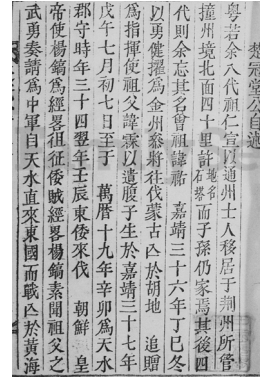 楚冠堂公自述
粤若余八代祖仁宣以通州士人移居于荆州所管
撞州境北面四十里許地名石塔而子孫仍家焉其後四
代則余忘其名曾祖諱祐 嘉靖三十六年丁巳冬
以勇健擢爲金州叅將往伐蒙古亾於胡地 追贈
爲指揮使祖父諱霖以遺腹子生於嘉靖三十七年
戊午七月初七日至 萬曆十九年辛卯爲天水
郡守時年三十四翌年壬辰東倭來伐 朝鮮 皇
帝使楊鎬爲經畧徂征倭賊經畧楊鎬素聞祖父之
武勇奏請爲中軍自天水直來東國而戰亾於黃海